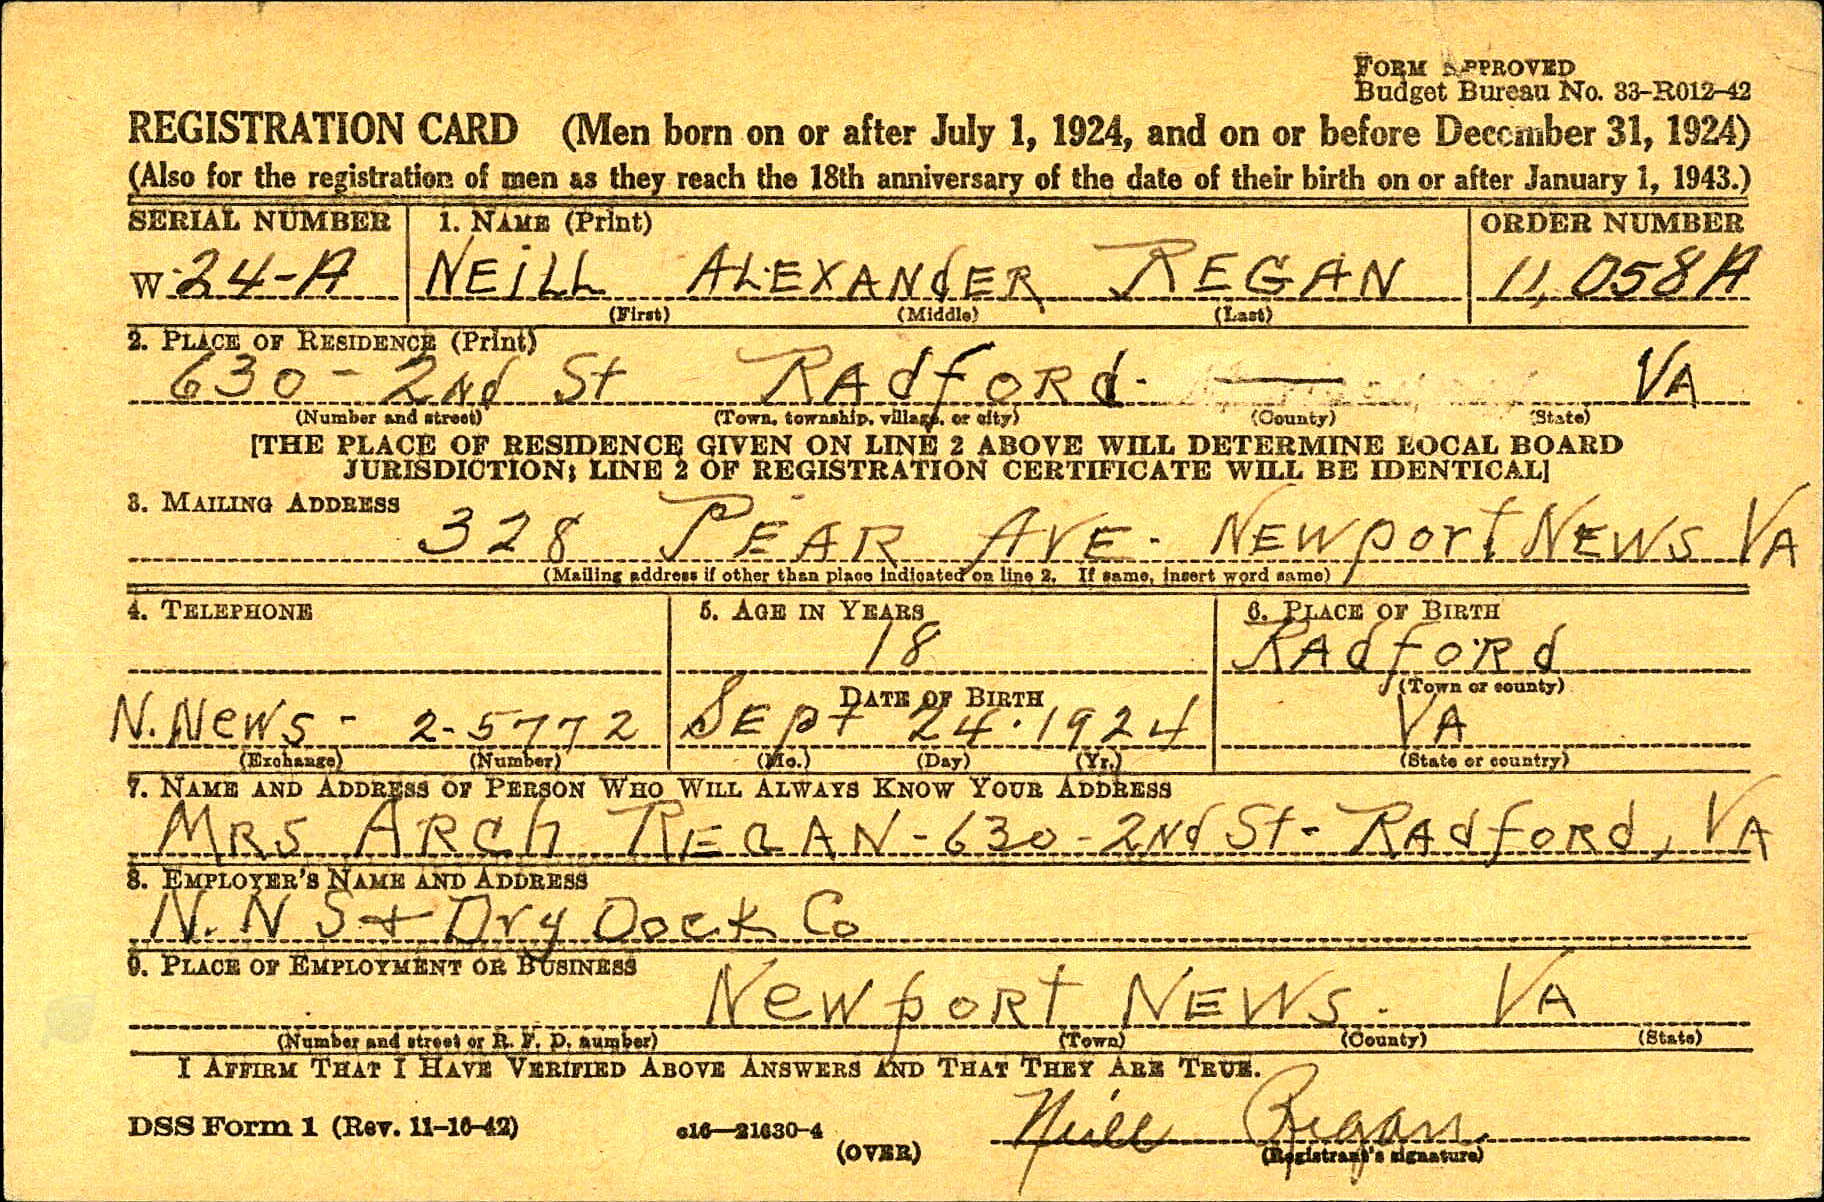 FORM APPROVED
Budget Bureau No. 33-R012-42
REGISTRATION CARD (Men born on or after July 1, 1924, and on or before December 31, 1924)
(Also for the registration of men as they reach the 18th anniversary of the date of their birth on or after January 1, 1943.)
SERIAL NUMBER 1. NAME (Print) ORDER NUMBER
W 24-A NEiLL ALEXANdER REGAN 11,058A
(First) (Middle) (Last)
2. PLACE OF RESIDENCE (Print)
630 - 2Nd St RAdfORd. — VA
(Number and street) (Town, township, village, or city) (County) (State)
[THE PLACE OF RESIDENCE GIVEN ON LINE 2 ABOVE WILL DETERMINE LOCAL BOARD
JURISDICTION; LINE 2 OF REGISTRATION CERTIFICATE WILL BE IDENTICAL]
3. MAILING ADDRESS
328 PEAR AVE. NEWport NEWS VA
(Mailing address if other than place indicated on line 2. If same, insert word same)
4. TELEPHONE 5. AGE IN YEARS 6. PLACE OF BIRTH
18 RAdfORd
DATE OF BIRTH (Town or county)
N. NeWS - 2-5772 SEpt 24. 1924 VA
(Exchange) (Number) (Mo.) (Day) (Yr.) (State or country)
7. NAME AND ADDRESS OF PERSON WHO WILL ALWAYS KNOW YOUR ADDRESS
MRS ARCh REGAN - 630 - 2Nd St - RAdfORd, VA
8. EMPLOYER'S NAME AND ADDRESS
N. N S + Dry Dock Co
9. PLACE OF EMPLOYMENT OR BUSINESS
NeWpORt NEWS. VA
(Number and street or R. F. D. number) (Town) (County) (State)
I AFFIRM THAT I HAVE VERIFIED ABOVE ANSWERS AND THAT THEY ARE TRUE.
DSS Form 1 (Rev. 11-16-42) c16—21630-4 Neill Regan
(OVER) (Registrant's signature)